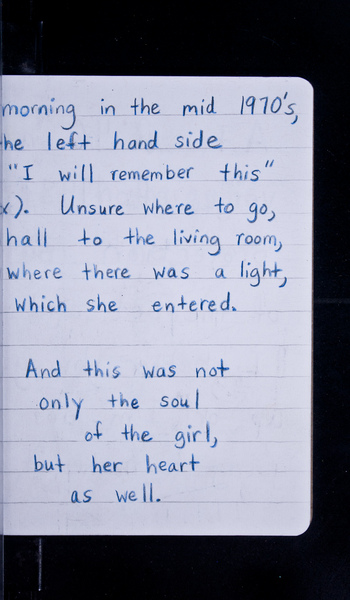 morning in the mid 1970's,
left hand side
"I will remember this"
). Unsure where to go,
hall to the living room,
where there was a light,
which she entered.
And this was not
only the soul
of the girl,
but her heart
as well.